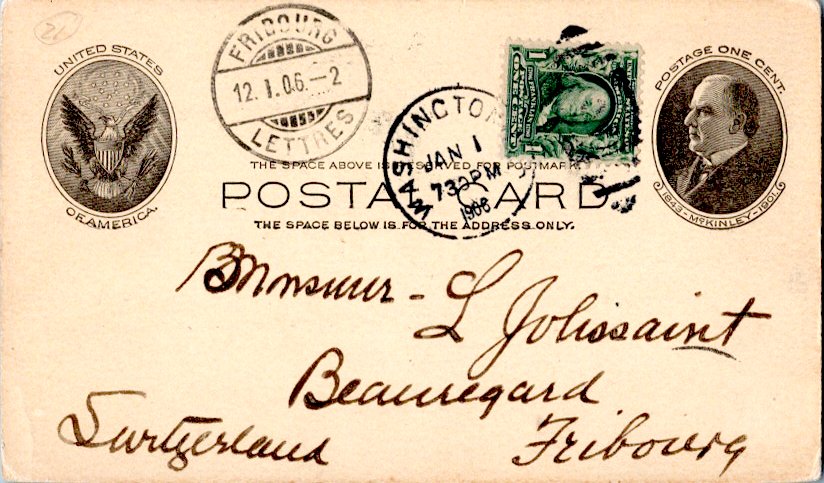 21
UNITED STATES
OF AMERICA.
FRIBOURG
12.I.06.-2
LETTRES
WASHINGTON
JAN 1
730PM
1906
1
ONE CENT
1
POSTAGE ONE CENT.
1843-McKINLEY-1901
THE SPACE ABOVE IS RESERVED FOR POSTMARK
POSTAL CARD
THE SPACE BELOW IS FOR THE ADDRESS ONLY.
Monsieur - L Jolissaint
Beauregard
Switzerland Fribourg